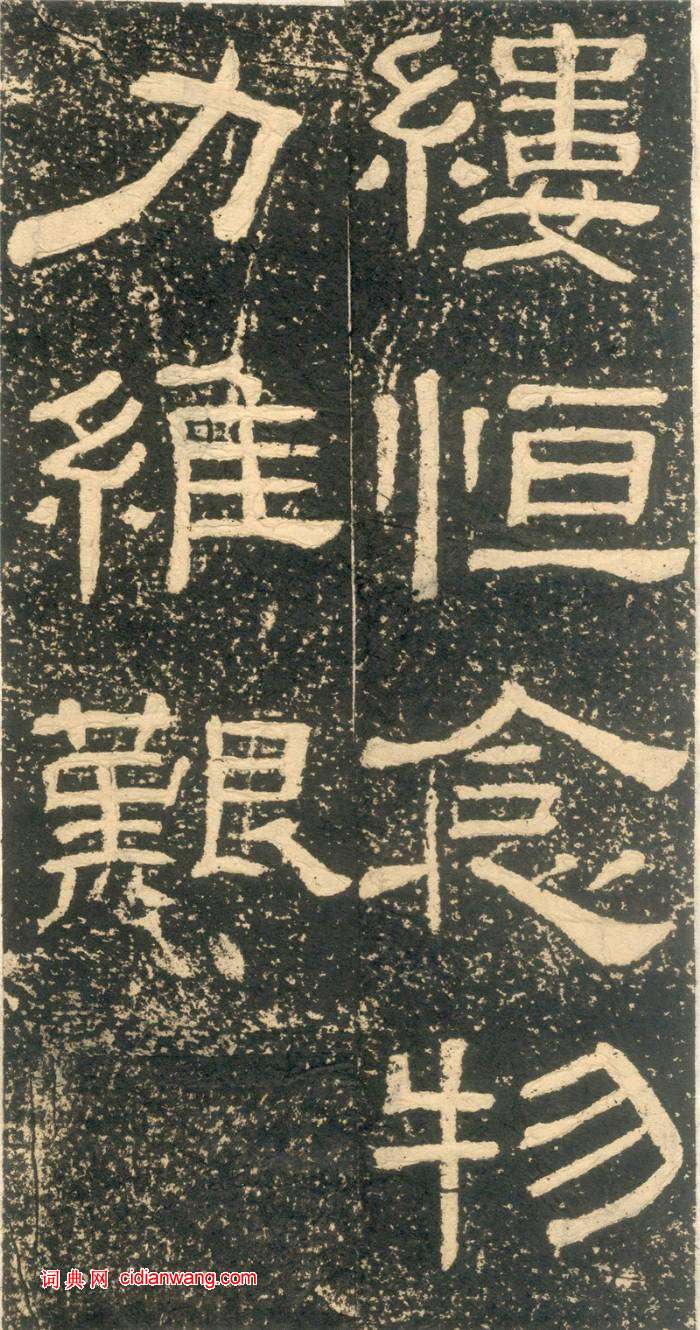 縷恒念物
力維艱
词典网 cidianwang.com